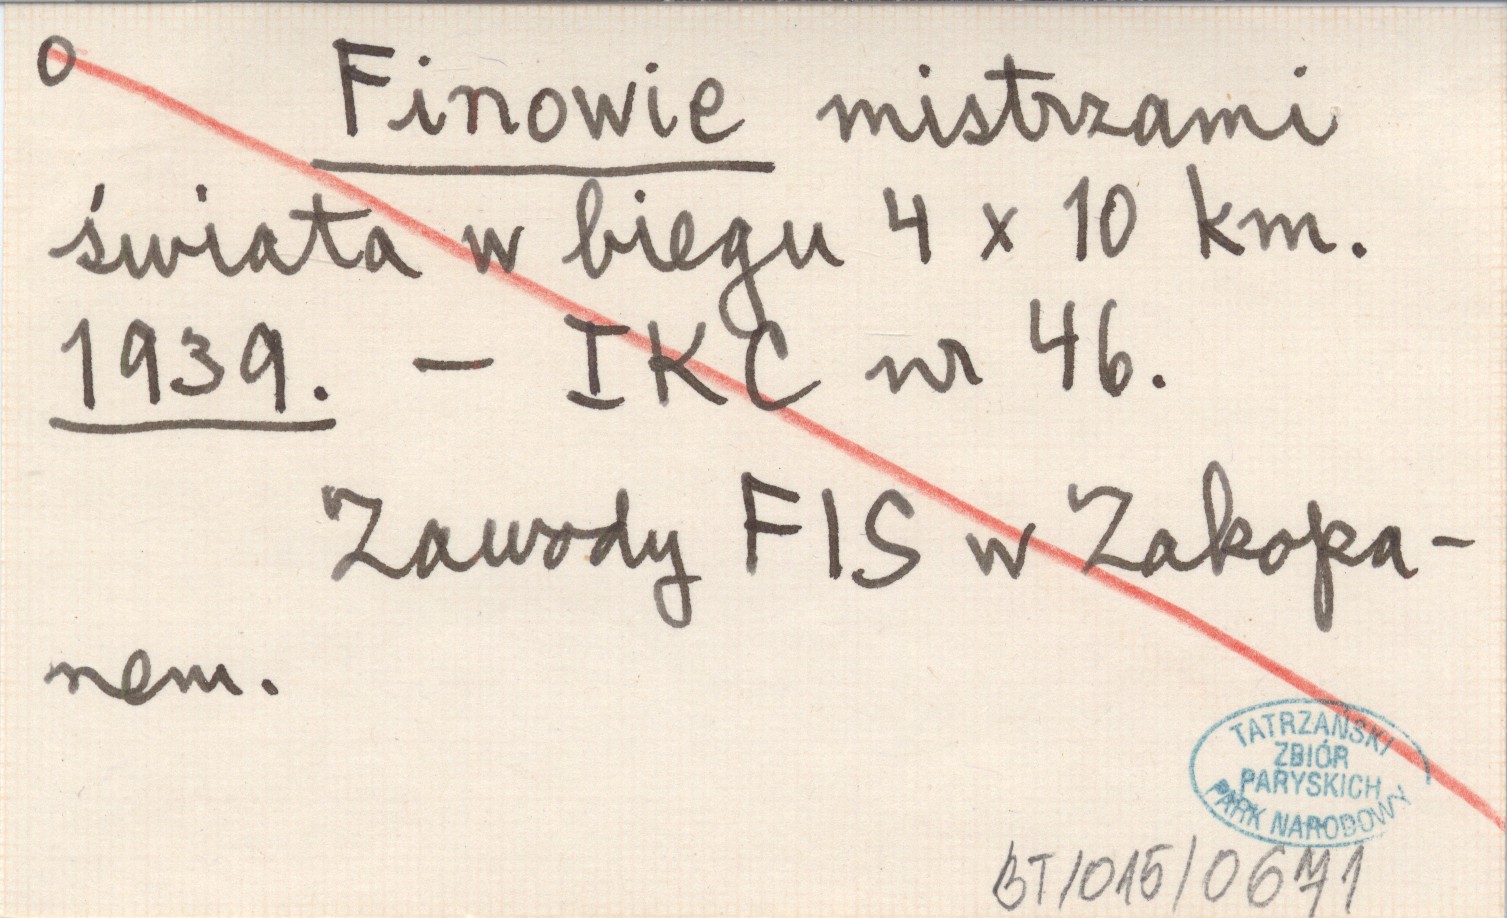 o Finowie mistrzami
świata w biegu 4 x 10 km.
1939. – IKC nr 46.
Zawody FIS w Zakopa-
nem.
TATRZAŃSKI
ZBIÓR
PARYSKICH
PARK NARODOWY
BT/015/0671